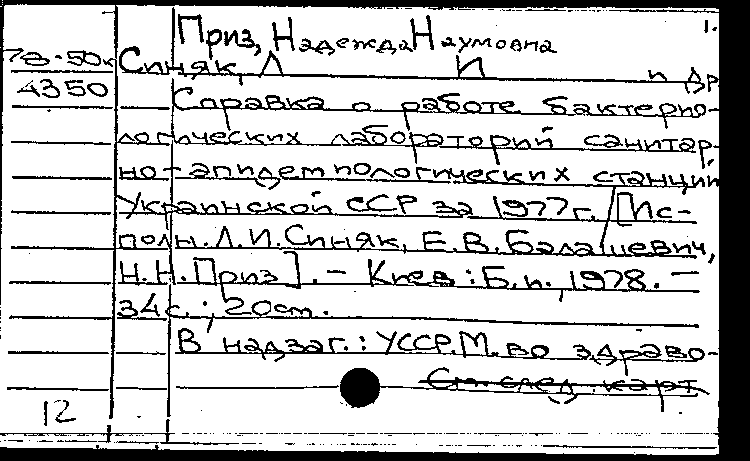 1.
Приз, Надежда Наумовна
78-50к Синяк, Л И и др.
4350 Справка о работе бактерио-
логических лабораторий санитар-
но-эпидемиологических станций
Украинской ССР за 1977 г. / [Ис-
полн. Л.И. Синяк, Е.В. Балацевич,
Н.Н. Приз]. - Киев : Б.и., 1978. -
34 с. ; 20 см.
В надзаг.: УССР. М-во здраво-
См. след. карт.
12